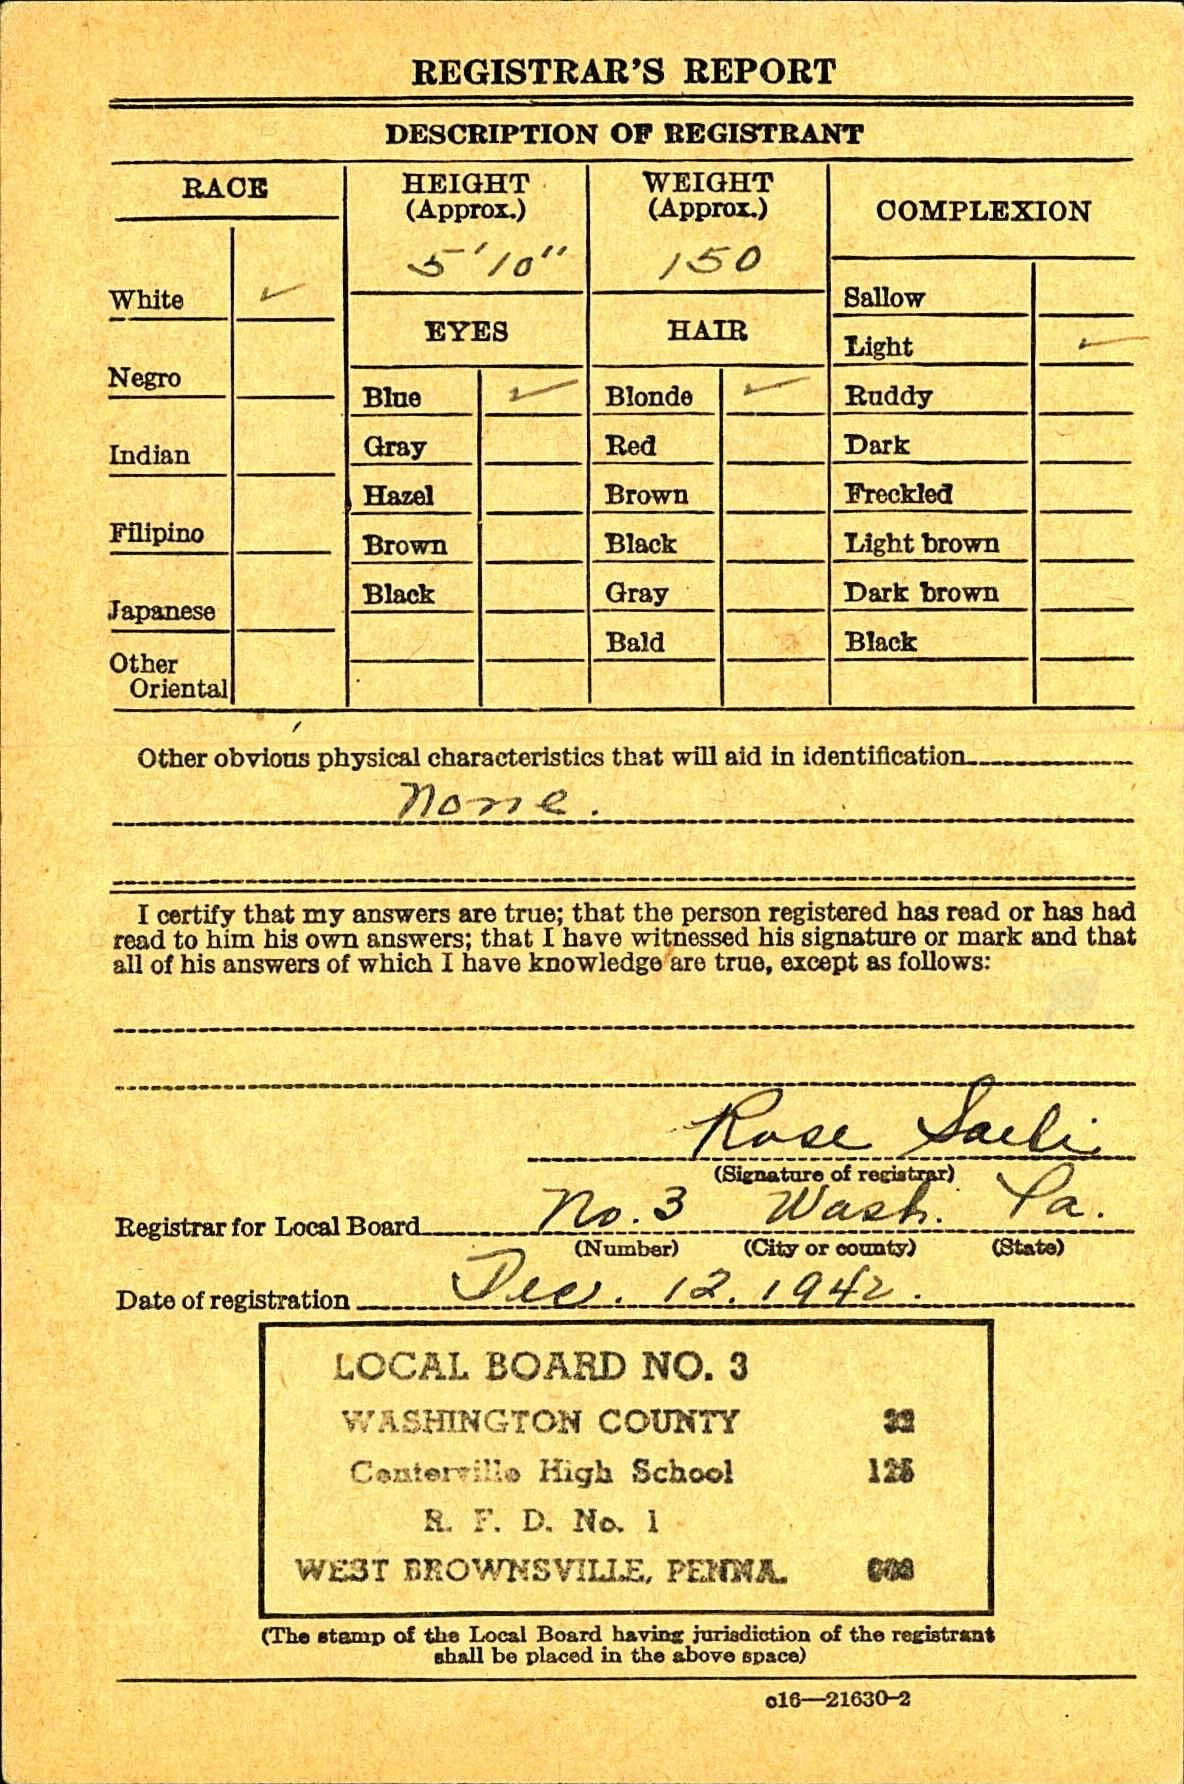 REGISTRAR'S REPORT
DESCRIPTION OF REGISTRANT
RACE
HEIGHT
(Approx.)
WEIGHT
(Approx.)
COMPLEXION
5'10"
150
White ✓
Sallow
EYES
HAIR
Light ✓
Negro
Blue ✓
Blonde ✓
Ruddy
Indian
Gray
Red
Dark
Hazel
Brown
Freckled
Filipino
Brown
Black
Light brown
Japanese
Black
Gray
Dark brown
Other
Oriental
Bald
Black
Other obvious physical characteristics that will aid in identification
None.
I certify that my answers are true; that the person registered has read or has had
read to him his own answers; that I have witnessed his signature or mark and that
all of his answers of which I have knowledge are true, except as follows:
Rose
(Signature of registrar)
Registrar for Local Board No. 3 Wash. Pa.
(Number) (City or county) (State)
Date of registration Dec. 12. 1942.
LOCAL BOARD NO. 3
WASHINGTON COUNTY
Centerville High School 125
R. F. D. No. 1
WEST BROWNSVILLE, PENNA.
(The stamp of the Local Board having jurisdiction of the registrant
shall be placed in the above space)
c16—21630-2